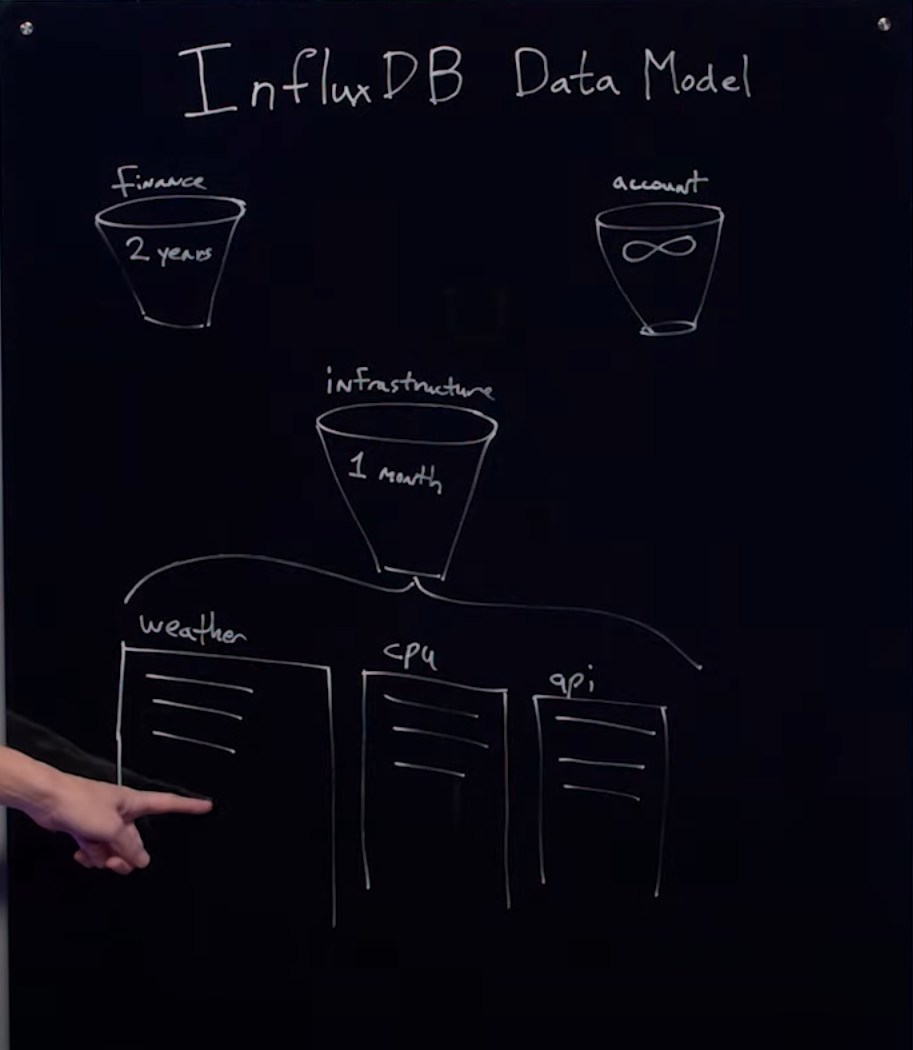 InfluxDB Data Model
finance
2 years
account
∞
infrastructure
1 month
weather
cpu
api